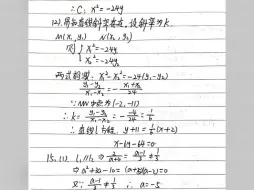 ∴ C: x²=-24y
(2).易知直线斜率存在,设斜率为k.
M(x₁,y₁) N(x₂,y₂)
则{ x₁²=-24y₁
x₂²=-24y₂
两式相减: x₁²-x₂²=-24(y₁-y₂)
(y₁-y₂)/(x₁-x₂)=-(x₁+x₂)/24
∵MN中点为(-2,-11)
∴k=(y₁-y₂)/(x₁-x₂)=-(-4)/24=1/6
∴直线l方程, y+11=1/6(x+2)
x-6y-64=0
15.(1). l₁//l₂ ⇒
⇒a²+3a-10=(a+5)(a-2)=0
∴a=-5